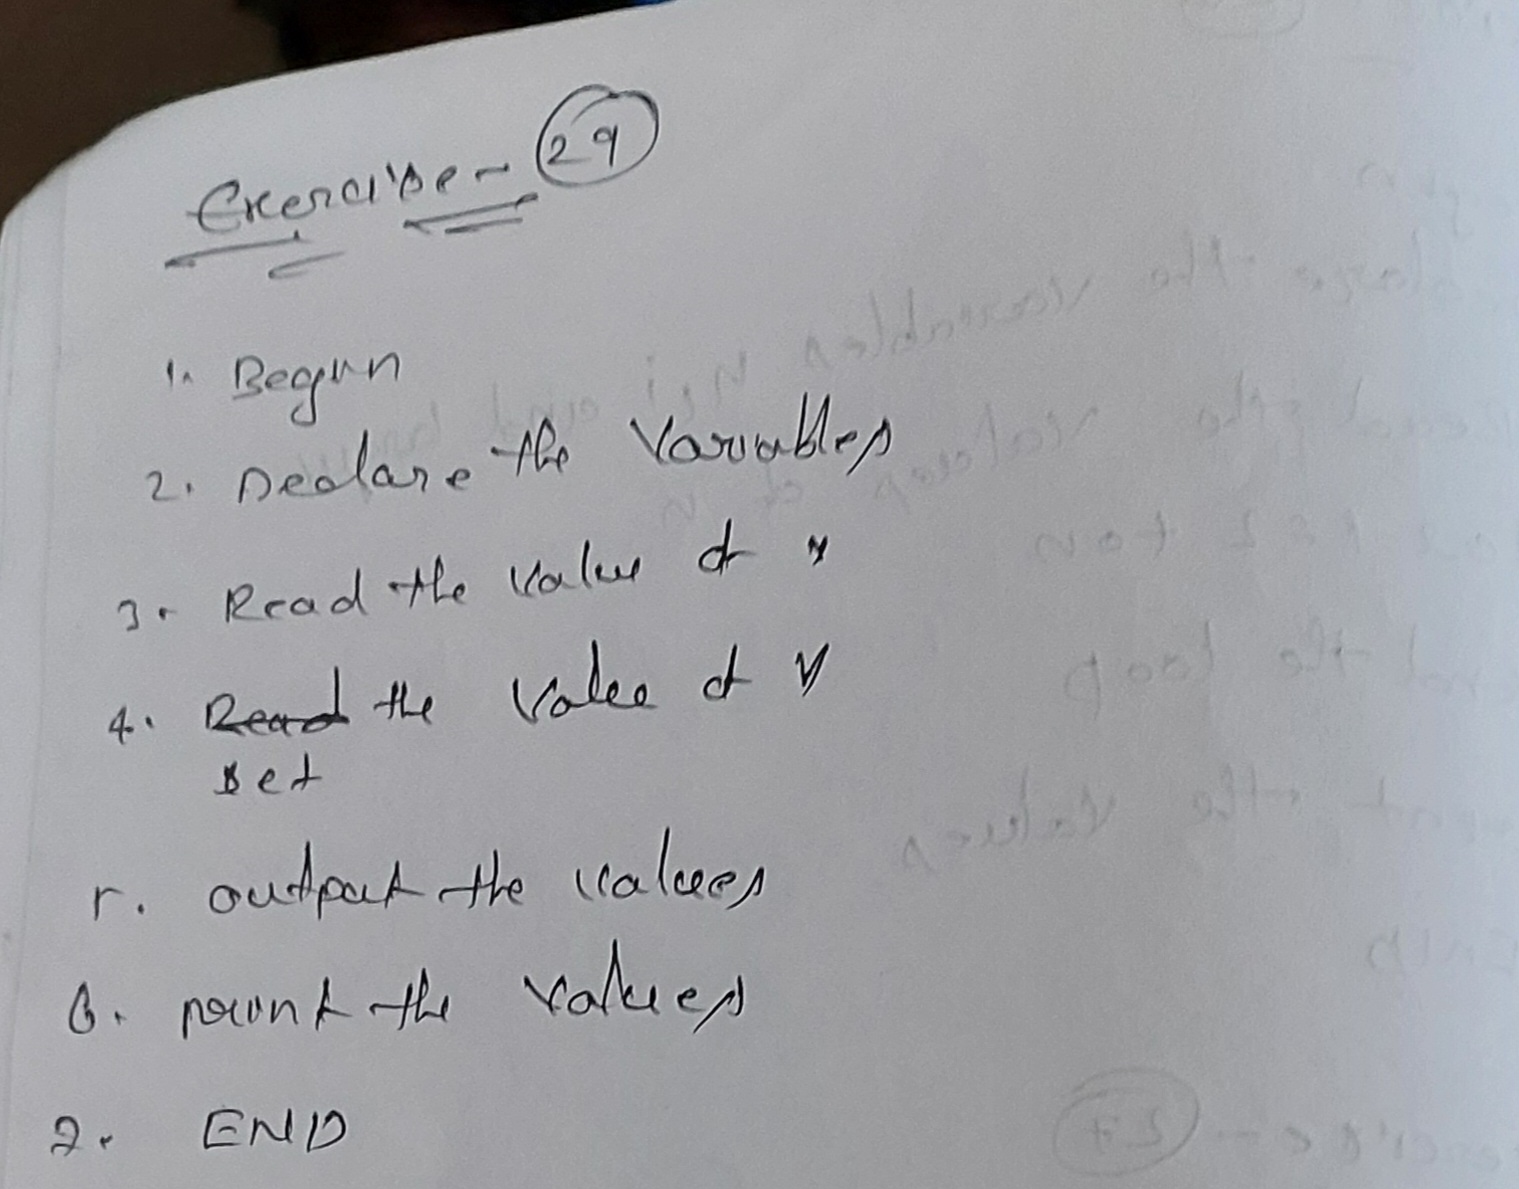 Exercise - 29
1. Begin
2. Declare the Variables
3. Read the value of x
4. Read the Value of y
set
5. output the values
6. print the values
7. END